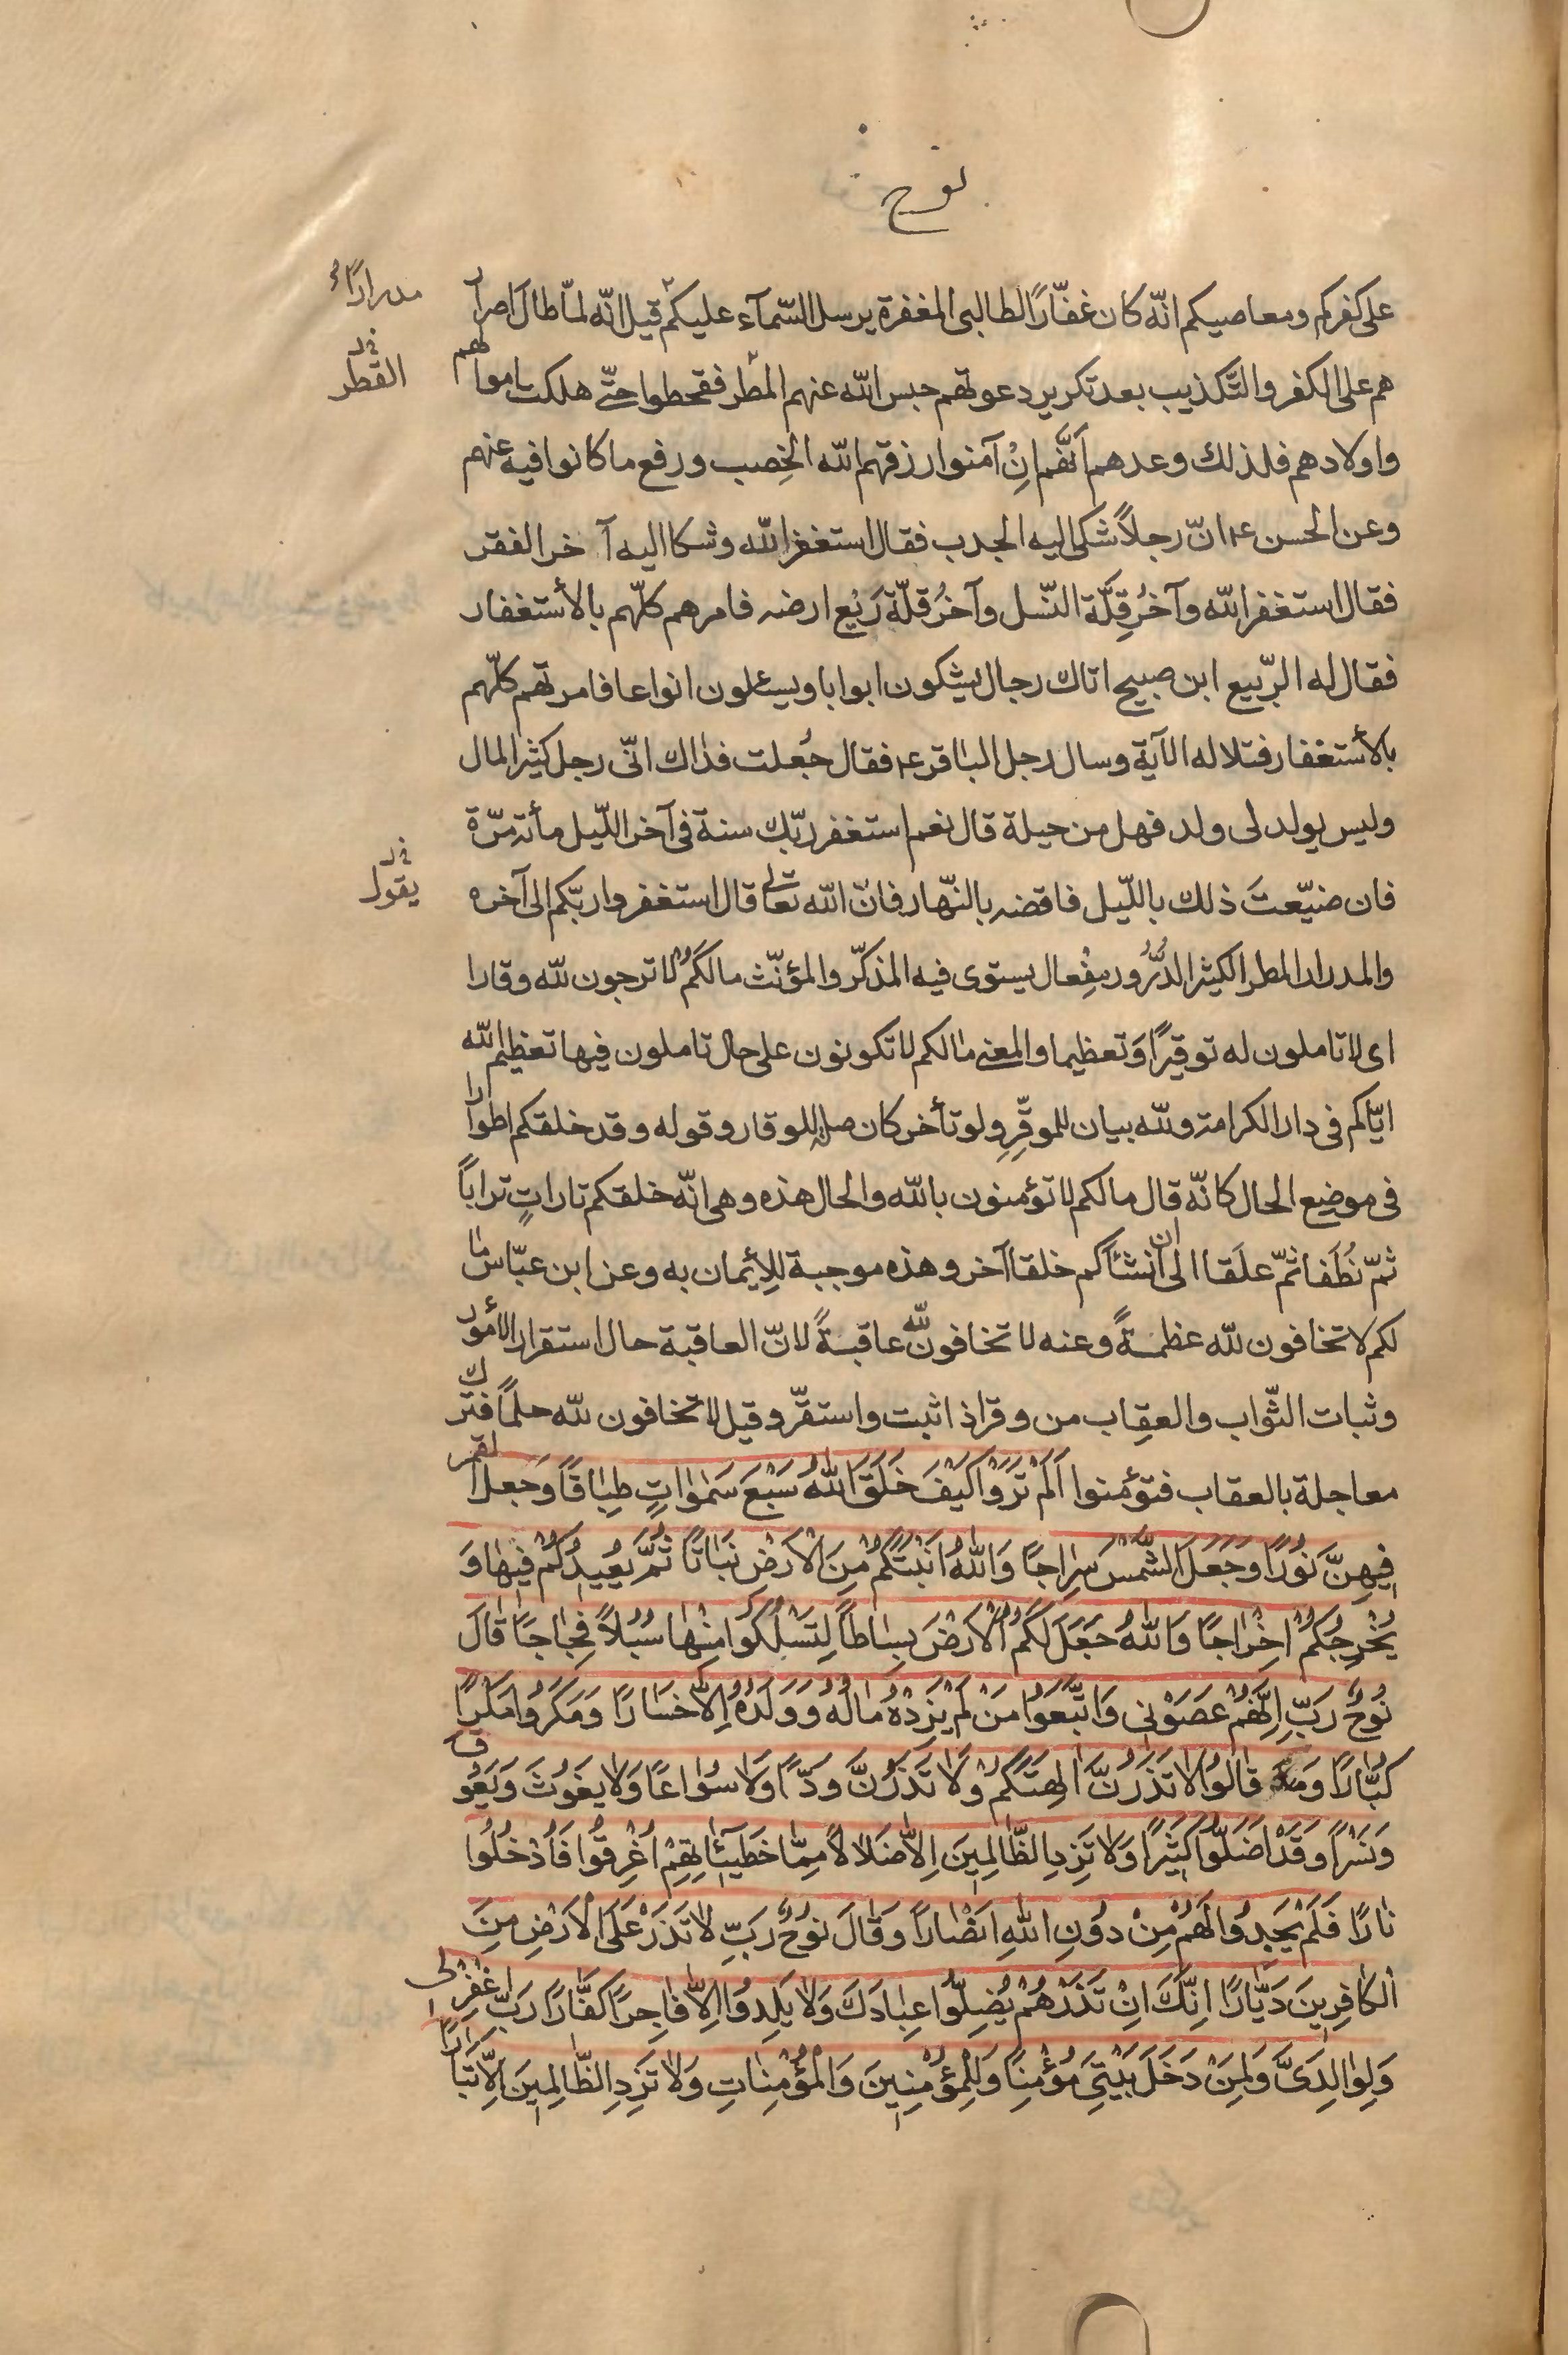 نوح
على كفركم ومعاصيكم انّه كان غفّارًا لطالبى المغفرة يرسل السّمآء عليكم قيل انّه لمّا طال اصرار
مدرارًا
هم على الكفر والتّكذيب بعد تكرير دعوتهم حبس اللّه عنهم المطر فقحطوا حتّى هلكت اموالهم
القطر
واولادهم فلذلك وعدهم أنّهم إنْ آمنوا رزقهم اللّه الخِصب ورفع ما كانوا فيه عنهم
وعن الحسن ع انّ رجلاً شكى اليه الجدب فقال استغفر اللّه وشكا اليه آخر الفقر
فقال استغفر اللّه وآخرُ قِلَّة النّسل وآخرُ قلّة رَيْع ارضه فامرهم كلّهم بالأستغفار
فقال له الرّبيع ابن صبيح اتاك رجال يشكون ابوابا ويسئلون انواعا فامرتهم كلّهم
بالأستغفار فتلا له الآية وسال رجل الباقر ع فقال جُعلت فداك انّى رجل كثير المال
وليس يولد لى ولد فهل من حيلة قال نعم استغفر ربّك سنة فى آخر اللّيل مأئة مرّة
فان ضيّعتَ ذلك باللّيل فاقضه بالنّهار فانّ اللّه تعالى قال استغفروا ربّكم الى آخره
يقول
والمدرار المطر الكثير الدُّرُور ومِفْعال يستوى فيه المذكّر والمؤنّث مالكُمْ لا ترجون للّه وقارا
اى لا تاملون له توقيرًا وَتعظيما والمعنى مالكم لا تكونون على حال تاملون فيها تعظيم اللّه
ايّاكم فى دار الكرامة وللّه بيان للموقِّرِ ولو تأخر كان صلة للوقار وقوله وقد خلقكم اطوارا
فى موضع الحال كانّه قال مالكم لا تؤمنون باللّه والحال هذه وهى انّه خلقكم تاراتٍ تراباً
ثمّ نُطَفا ثمّ علَقا الى ان انشأكم خلقا آخر وهذه موجبة للإيمان به وعن ابن عبّاس ما
لكم لا تخافون للّه عظمةً وعنه لا تخافون للّه عاقبةً لانّ العاقبة حال استقرار الأمور
وثبات الثّواب والعِقاب من وقر اذا ثبت واستقرّ وقيل لا تخافون للّه حلمًا فترك
معاجلة بالعقاب فتؤمنوا اَلَمْ تَرَوْا كَيْفَ خَلَقَ اللّٰهُ سَبْعَ سَمٰوٰاتٍ طِبٰاقًا وَجَعَلَ القمر
فِيهِنَّ نُورًا وَجَعَلَ الشَّمْسَ سِرٰاجًا وَاللّٰهُ اَنْبَتَكُمْ مِنَ الْاَرْضِ نَبٰاتًا ثُمَّ يُعِيدُكُمْ فِيهٰا وَ
يُخْرِجُكُمْ اِخْرٰاجًا وَاللّٰهُ جَعَلَ لَكُمُ الْاَرْضَ بِسٰاطًا لِتَسْلُكُوا مِنْهٰا سُبُلاً فِجٰاجًا قٰالَ
نُوحٌ رَبِّ اِنَّهُمْ عَصَوْنِى وَاتَّبَعُوا مَنْ لَمْ يَزِدْهُ مٰالُهُ وَوَلَدُهُ اِلاّٰ خَسٰارًا وَمَكَرُوا مَكْرًا
كُبّٰارًا وَ قٰالُوا لاٰ تَذَرُنَّ اٰلِهَتَكُمْ وَلاٰ تَذَرُنَّ وَدًّا وَلاٰ سُوٰاعًا وَلاٰ يَغُوثَ وَيَعُوق
وَنَسْرًا وَقَدْ اَضَلُّوا كَثِيرًا وَلاٰ تَزِدِ الظّٰالِمِينَ اِلاّٰ ضَلاٰلاً مِمّٰا خَطِيئٰاتِهِمْ اُغْرِقُوا فَاُدْخِلُوا
نٰارًا فَلَمْ يَجِدُوا لَهُمْ مِنْ دُونِ اللّٰهِ اَنْصٰارًا وَقٰالَ نُوحٌ رَبِّ لاٰ تَذَرْ عَلَى الْاَرْضِ مِنَ
الْكٰافِرِينَ دَيّٰارًا اِنَّكَ اِنْ تَذَرْهُمْ يُضِلُّوا عِبٰادَكَ وَلاٰ يَلِدُوا اِلاّٰ فٰاجِرًا كَفّٰارًا رَبِّ اغْفِرْ لِى
وَلِوٰالِدَىَّ وَلِمَنْ دَخَلَ بَيْتِىَ مُؤْمِنًا وَلِلْمُؤْمِنِينَ وَالْمُؤْمِنٰاتِ وَلاٰ تَزِدِ الظّٰالِمِينَ اِلاّٰ تَبٰارًا